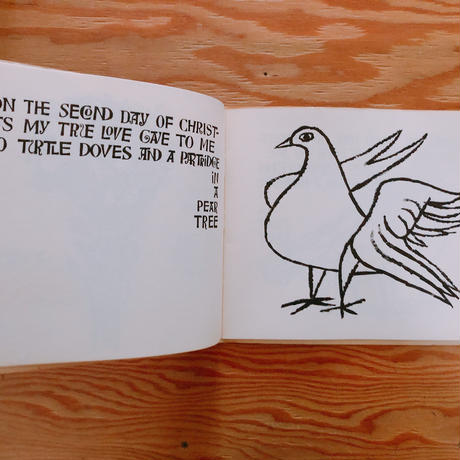 ON THE SECOND DAY OF CHRIST-
S MY TRUE LOVE GAVE TO ME
O TURTLE DOVES AND A PARTRIDGE
IN
A
PEAR
TREE